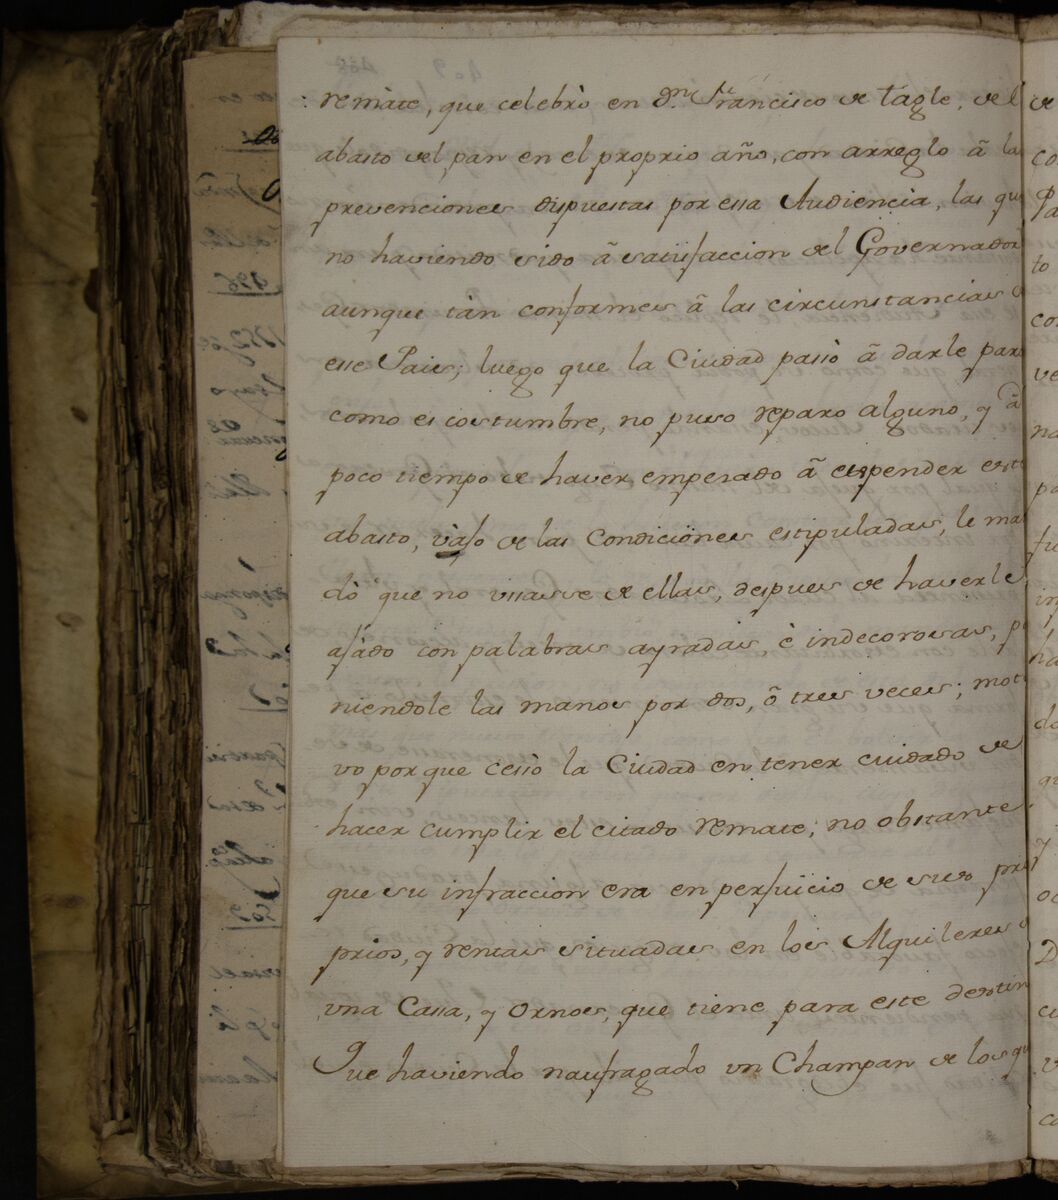 remate, que celebrò en Dn. Francisco de Tagle, del
abasto del pan en el proprio año, con arreglo â la
prevenciones dispuestas por essa Audiencia, las qu
no haviendo sido â satisfaccion del Governador
aunque tàn conformes â las circunstancias
esse Pais; luego que la Ciudad passò â darle par
como es costumbre, no puso reparo alguno, y â
poco tiempo de haver empesado â espender est
abasto, vajo de las Condiciones estipuladas, le ma
dò que no usasse de ellas, despues de haverle
ajado con palabras ayradas, è indecorosas, p
niendole las manos por dos, ô tres veces; moti
vo por que cessò la Ciudad en tener cuidado de
hacer cumplir el citado remate; no obstante
que su infraccion era en perjuicio de sus pro
prios, y rentas situadas en los Alquileres
una Cassa, y Ornos, que tiene para este destin
Que haviendo naufragado un Champan de los qu